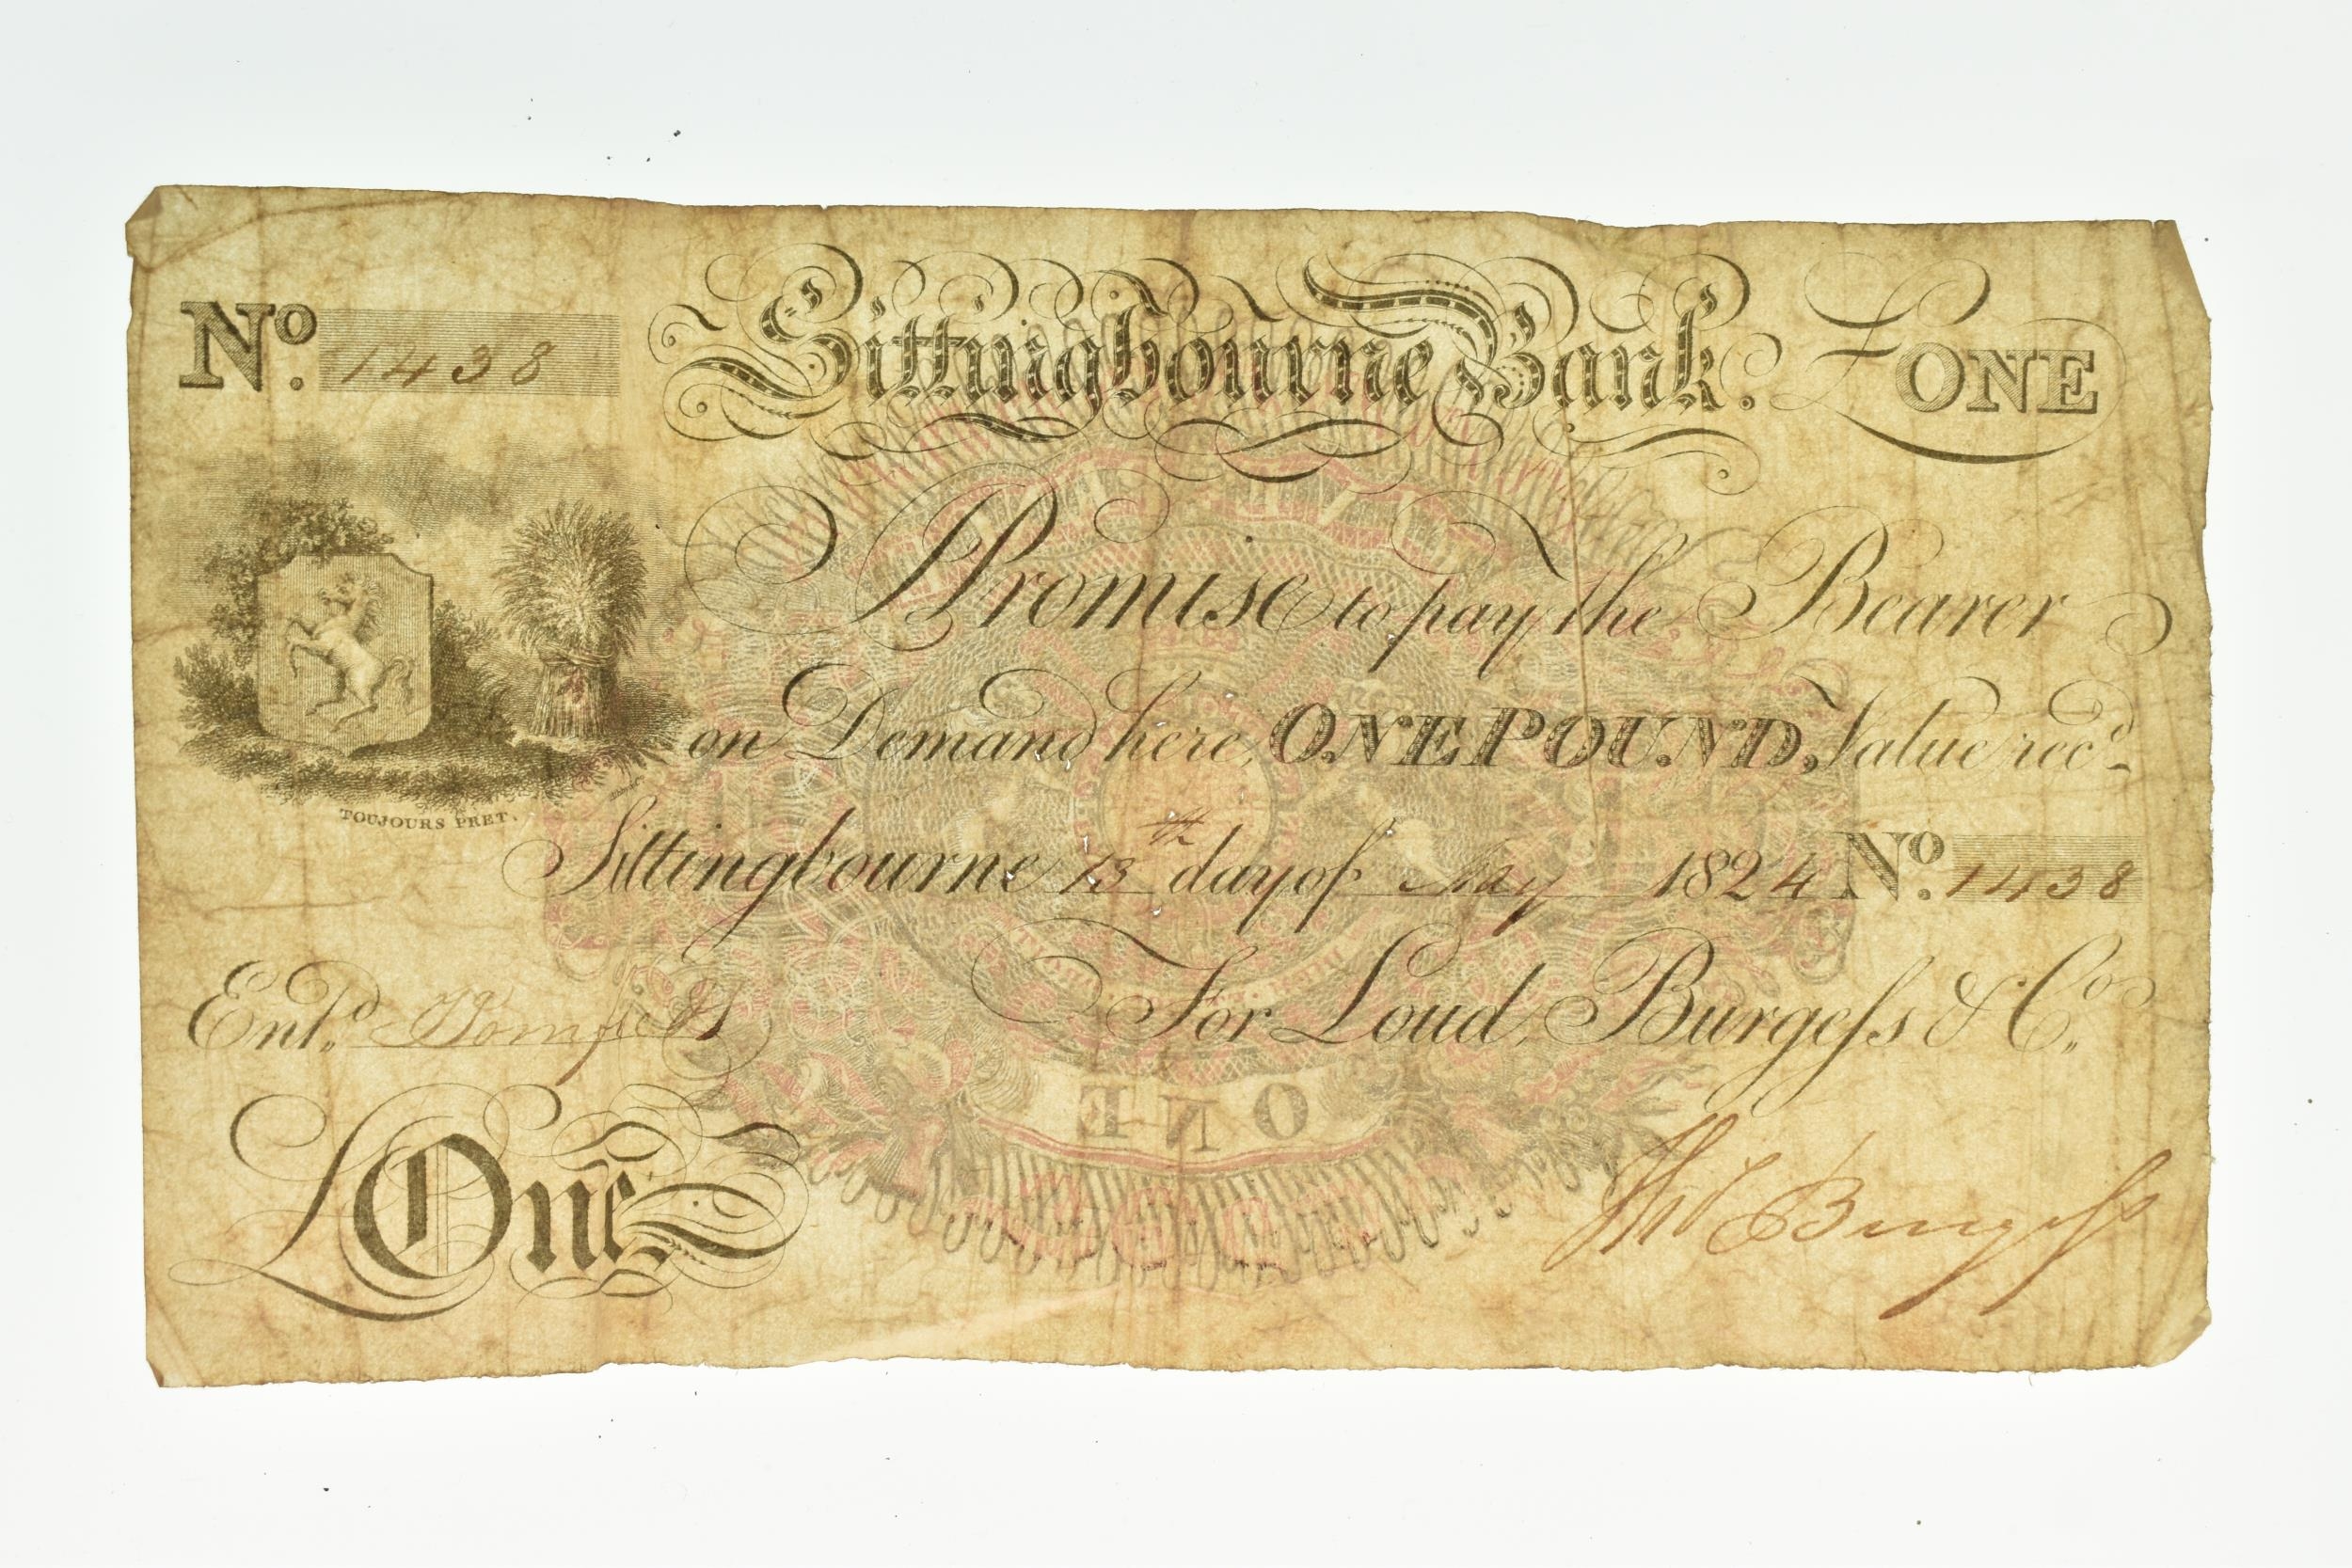 No. 1438 Sittingbourne Bank. £ONE
I Promise to pay the Bearer
on Demand here, ONE POUND, Value recd.
TOUJOURS PRET.
Sittingbourne 13th day of May 1824 No. 1438
Entd.
For Loud, Burgeſs & Co.
£One
ONE
Burgeſs